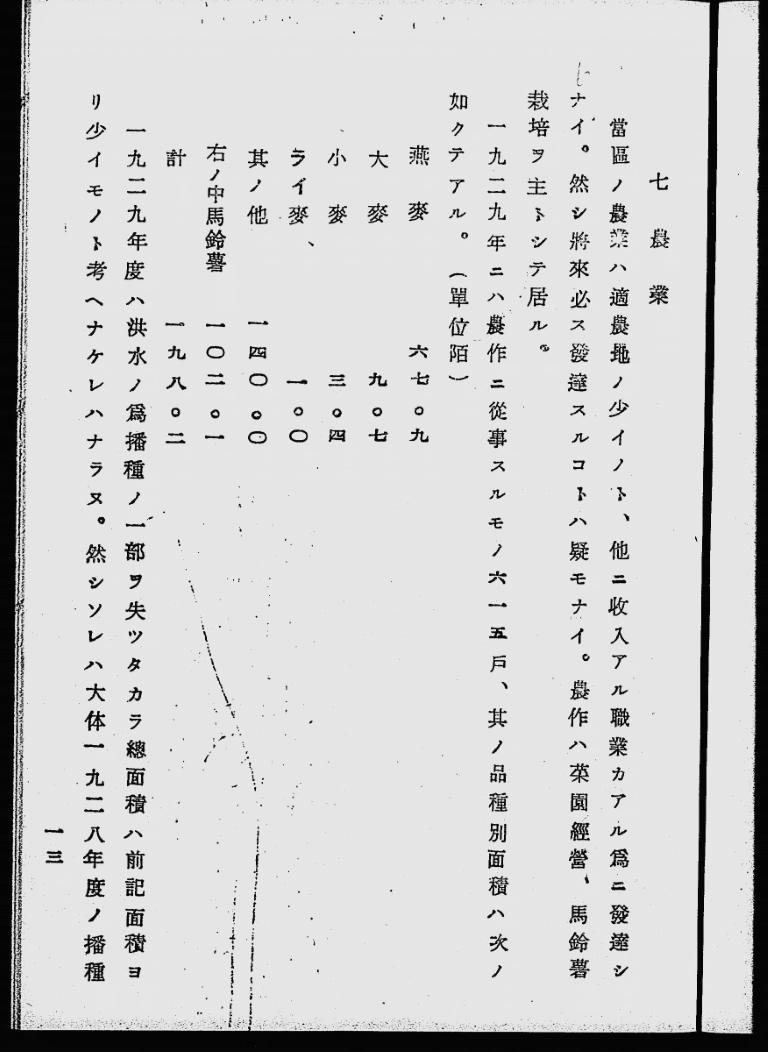 七農業
當區ノ農業ハ適農地ノ少イノト、他ニ收入アル職業カアル爲ニ發達シ
ナイ。然シ將來必ス發達スルコトハ疑モナイ。農作ハ菜園經營、馬鈴薯
栽培ヲ主トシテ居ル。
一九二九年ニハ農作ニ從事スルモノ六一五戶、其ノ品種別面積ハ次ノ
如クテアル。(單位陌)
燕麥 六七。九
大麥 九。七
小麥 三。四
ライ麥、 一。〇
其ノ他 一四〇。〇
右ノ中馬鈴薯 一〇二。一
計 一九八。二
一九二九年度ハ洪水ノ爲播種ノ一部ヲ失ツタカラ總面積ハ前記面積ヨ
リ少イモノト考ヘナケレハナラヌ。然シソレハ大体一九二八年度ノ播種
一三